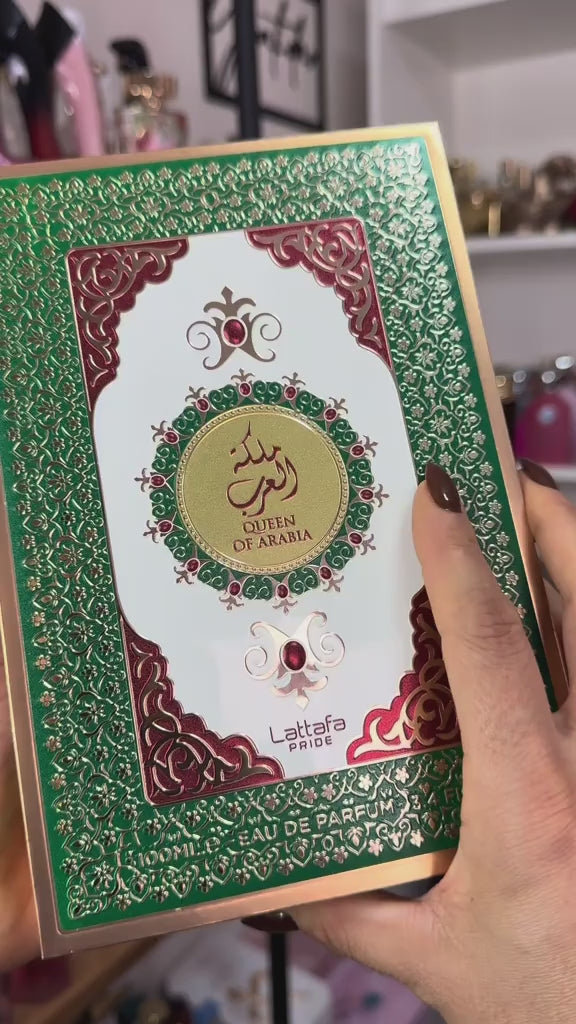 ملكة
العرب
QUEEN
OF ARABIA
Lattafa
PRIDE
100ML.℮ EAU DE PARFUM